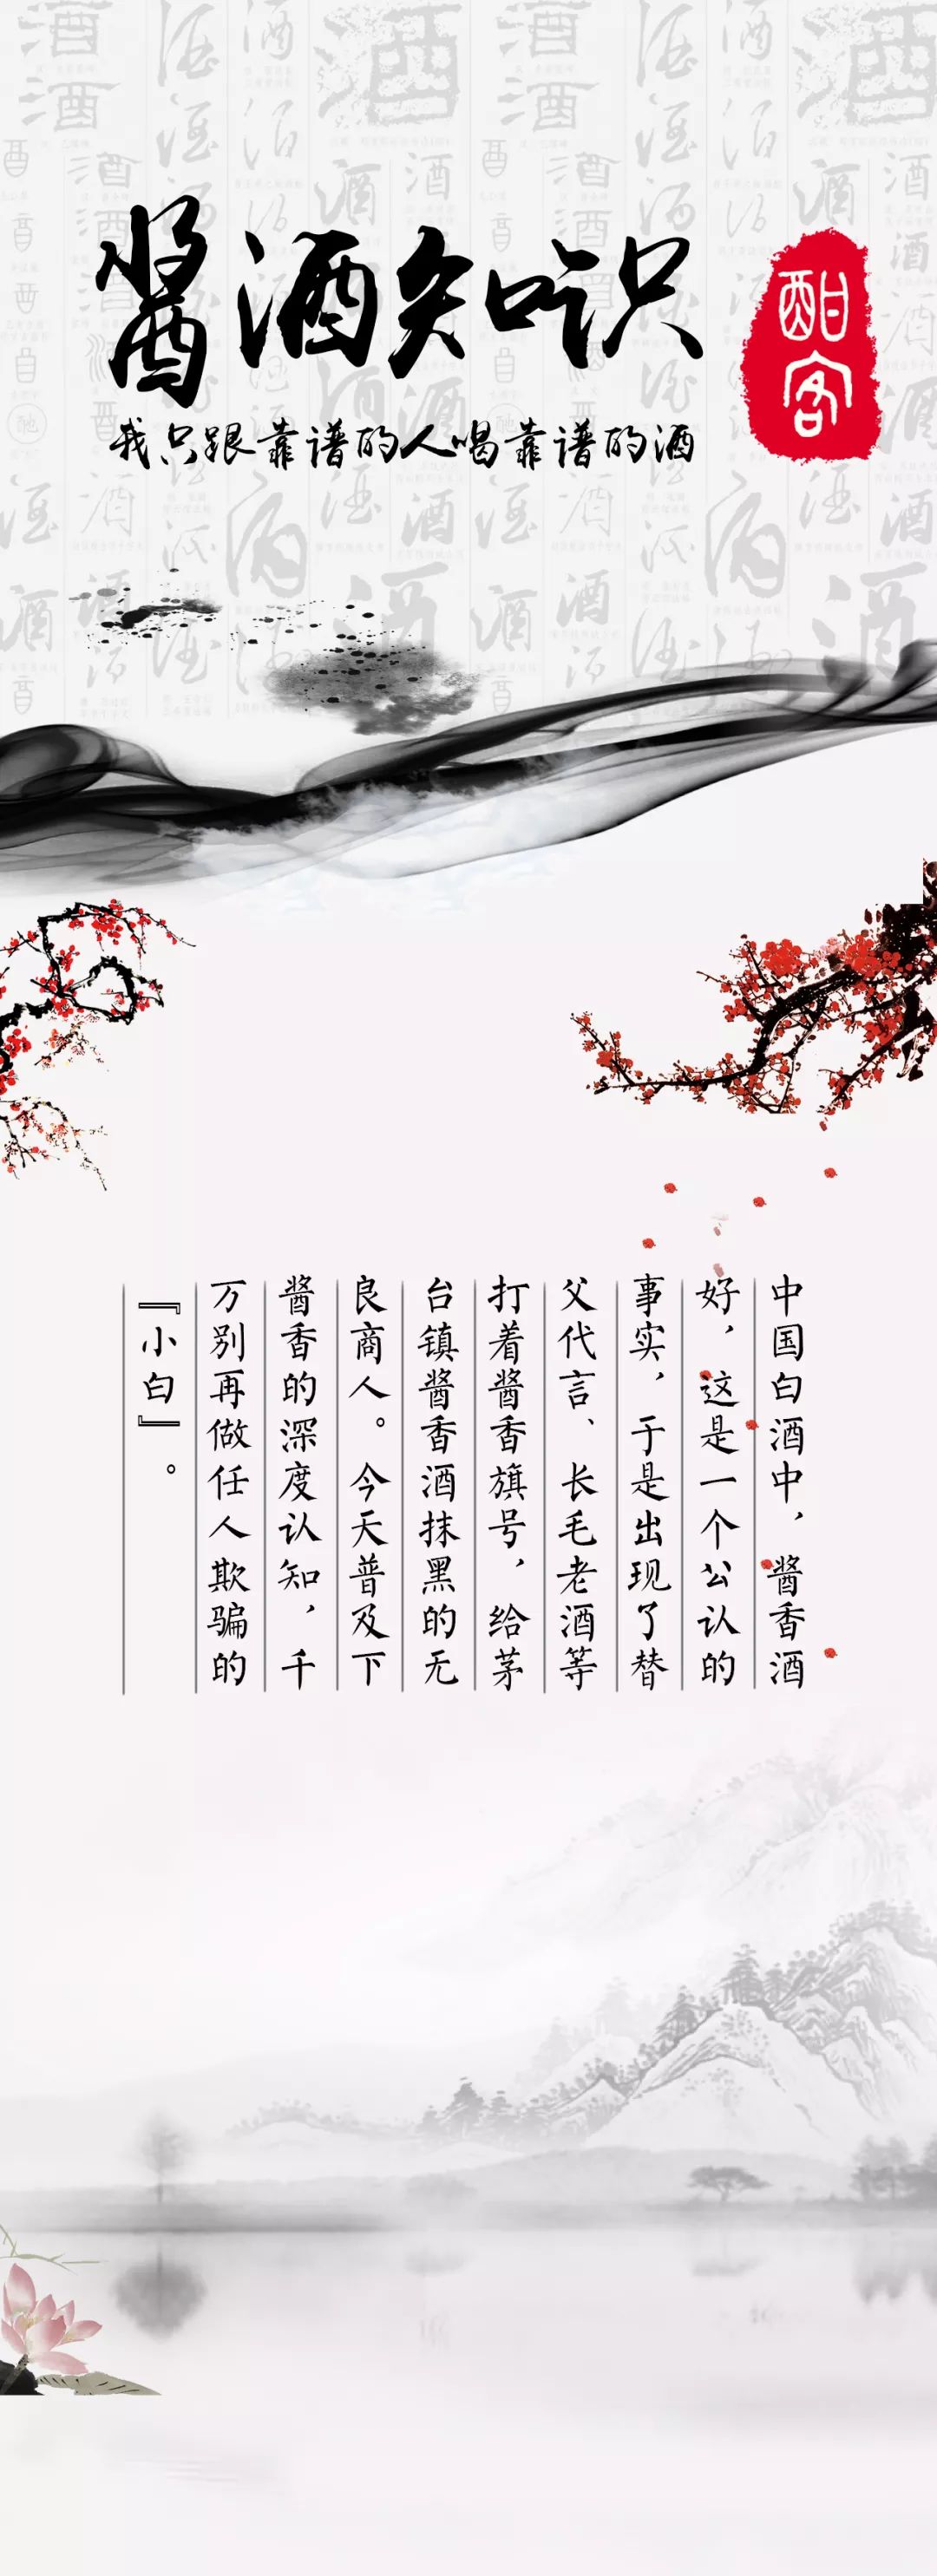 酱酒知识
酣客
我只跟靠谱的人喝靠谱的酒
中国白酒中，酱香酒
好，这是一个公认的
事实，于是出现了替
父代言、长毛老酒等
打着酱香旗号，给茅
台镇酱香酒抹黑的无
良商人。今天普及下
酱香的深度认知，千
万别再做任人欺骗的
『小白』。